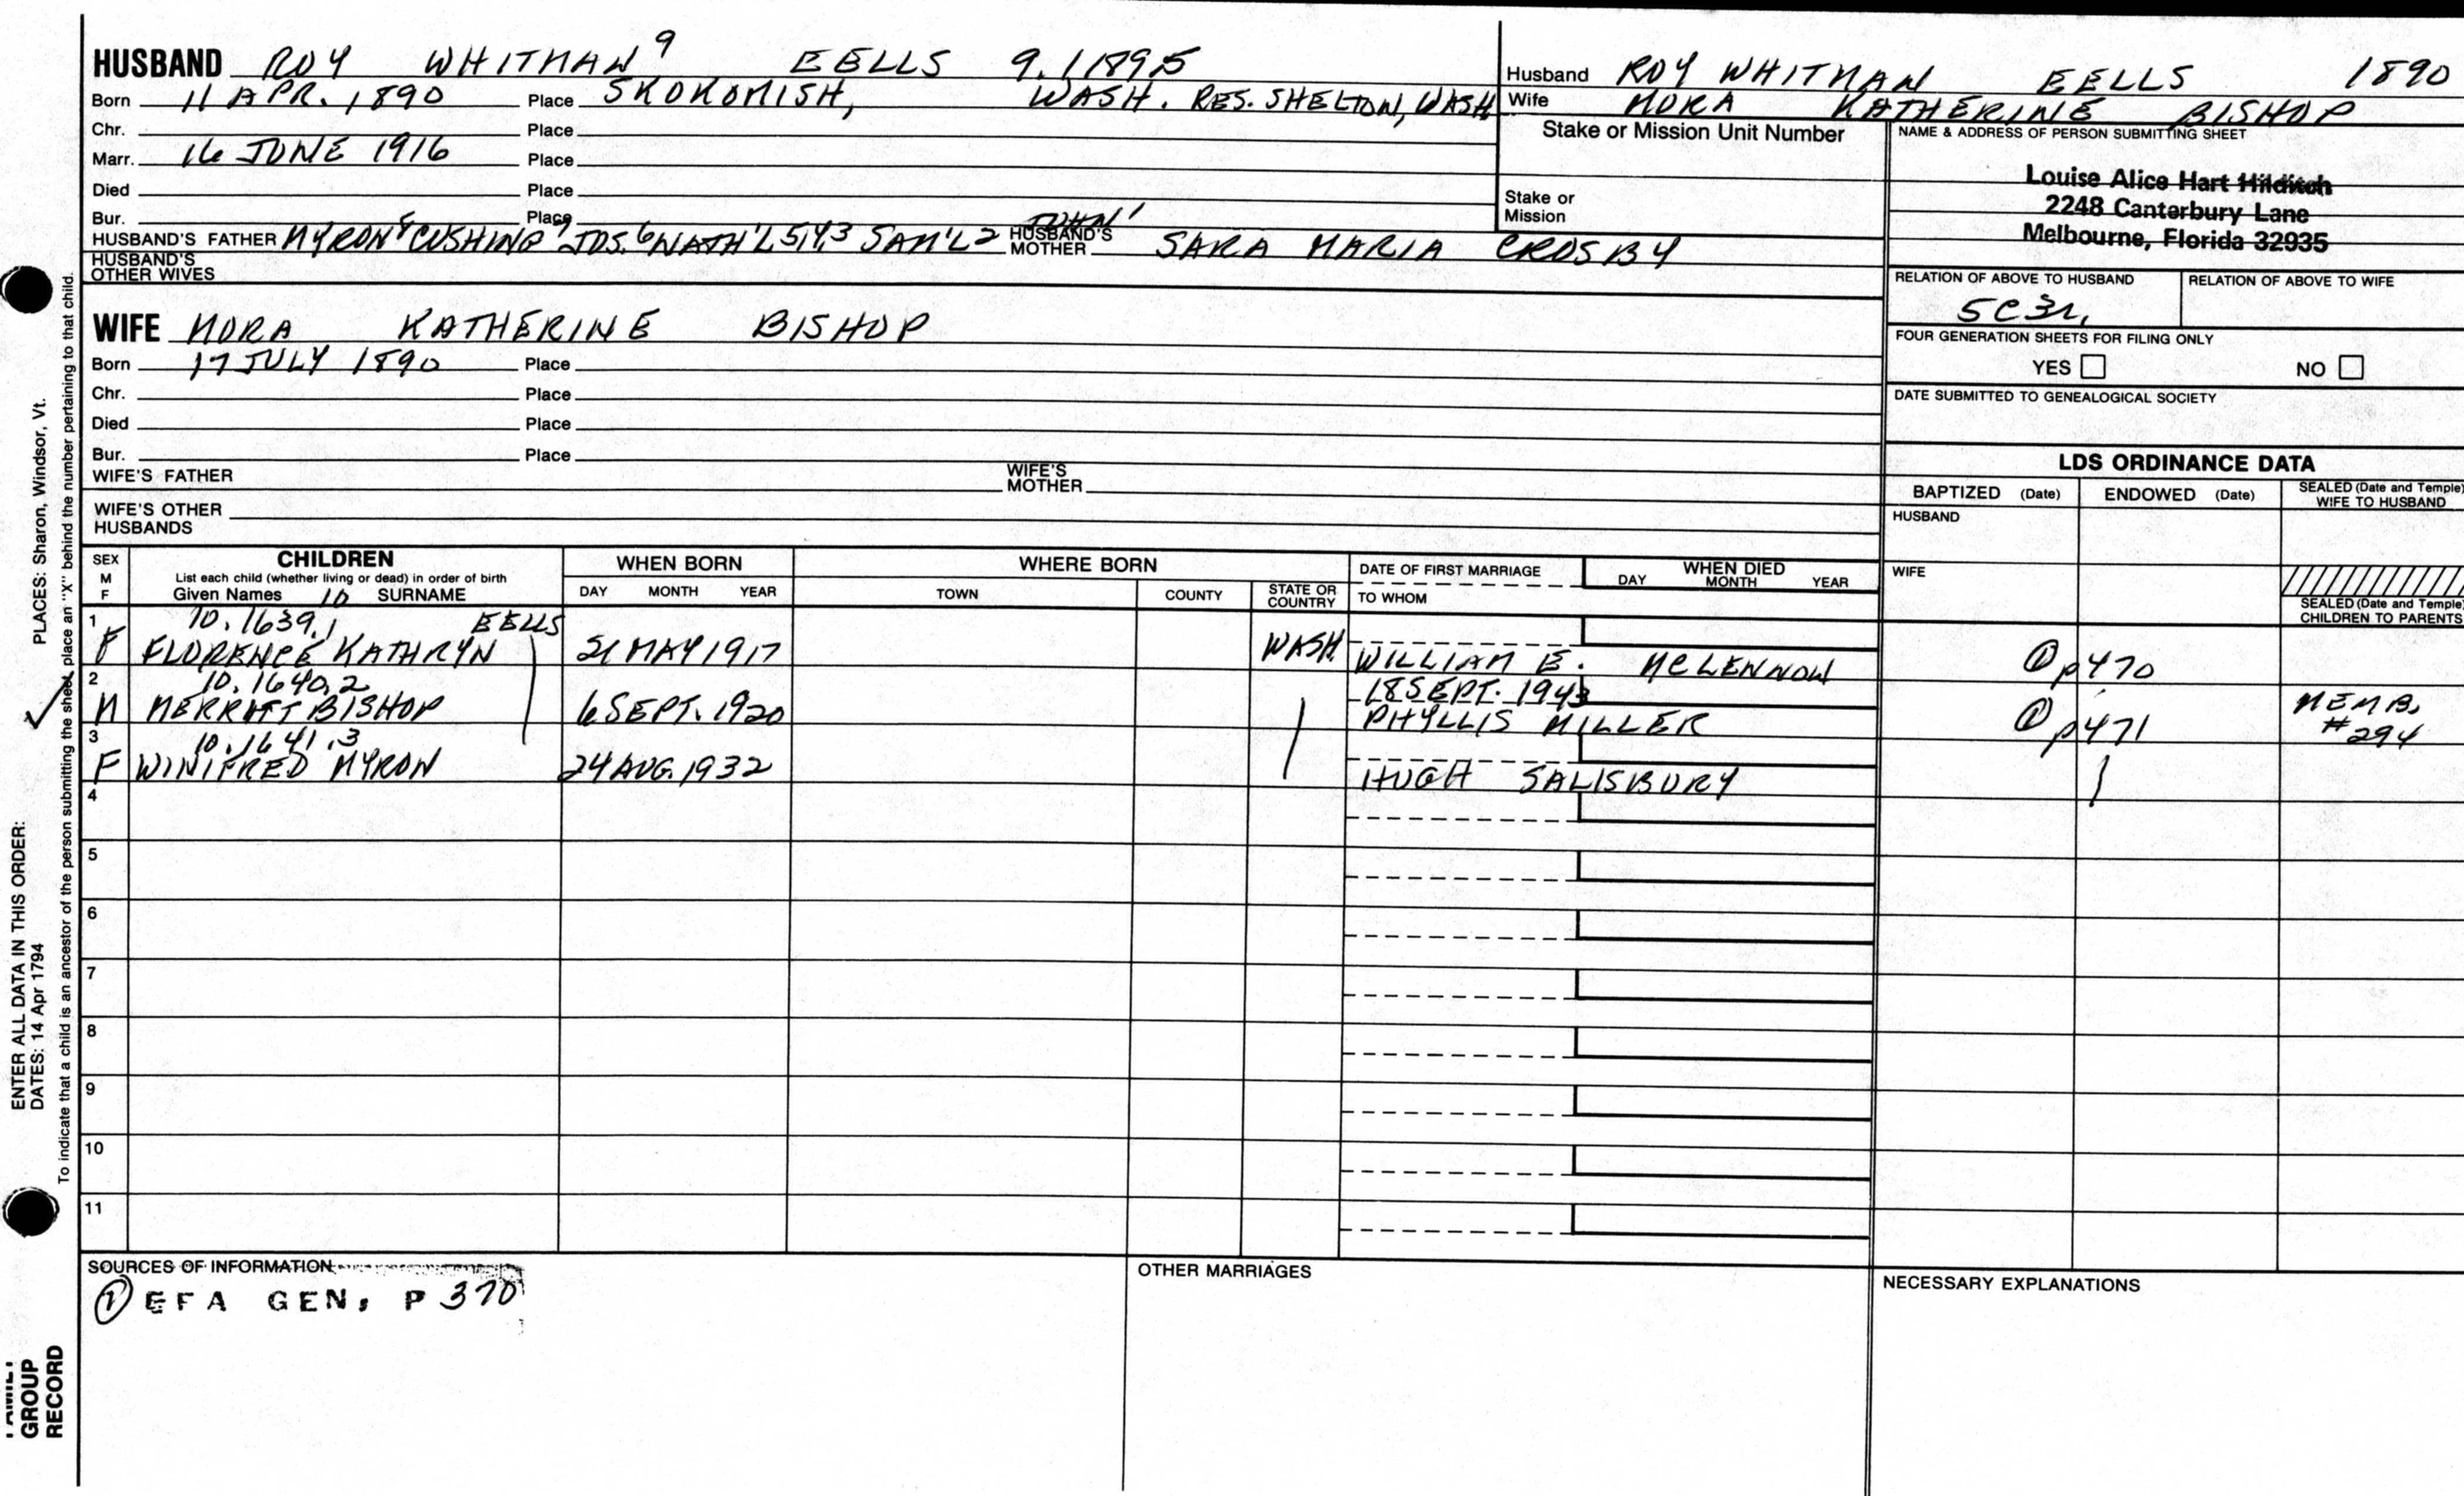 HUSBAND ROY WHITMAN 9 EELLS 9.11895
Born 11 APR. 1890 Place SKOKOMISH, WASH. RES. SHELTON, WASH
Chr. Place
Marr. 16 JUNE 1916 Place
Died Place
Bur. Place
HUSBAND'S FATHER MYRON 8 CUSHING 7 JOS. 6 NATH'L 5,4,3 SAM'L 2 JOHN 1
HUSBAND'S MOTHER SARA MARIA CROSBY
HUSBAND'S OTHER WIVES
Husband ROY WHITMAN EELLS 1890
Wife NORA KATHERINE BISHOP
Stake or Mission Unit Number
Stake or Mission
NAME & ADDRESS OF PERSON SUBMITTING SHEET
Louise Alice Hart Hilditch
2248 Canterbury Lane
Melbourne, Florida 32935
RELATION OF ABOVE TO HUSBAND RELATION OF ABOVE TO WIFE
5C3r.
FOUR GENERATION SHEETS FOR FILING ONLY
YES NO
DATE SUBMITTED TO GENEALOGICAL SOCIETY
WIFE NORA KATHERINE BISHOP
Born 17 JULY 1890 Place
Chr. Place
Died Place
Bur. Place
WIFE'S FATHER WIFE'S MOTHER
WIFE'S OTHER HUSBANDS
LDS ORDINANCE DATA
BAPTIZED (Date) ENDOWED (Date) SEALED (Date and Temple) WIFE TO HUSBAND
HUSBAND
WIFE
SEALED (Date and Temple) CHILDREN TO PARENTS
SEX M F
CHILDREN
List each child (whether living or dead) in order of birth
Given Names 10 SURNAME
WHEN BORN
DAY MONTH YEAR
WHERE BORN
TOWN COUNTY STATE OR COUNTRY
DATE OF FIRST MARRIAGE
TO WHOM
WHEN DIED
DAY MONTH YEAR
1 10.1639.1 EELLS
F FLORENCE KATHRYN 21 MAY 1917 WASH. WILLIAM E. MCLENNON ① p470
2 10.1640.2 18 SEPT. 1943
M MERRITT BISHOP 6 SEPT. 1920 PHYLLIS MILLER ① p471 MEMB. #294
3 10.1641.3
F WINIFRED MYRON 24 AUG. 1932 HUGH SALISBURY
4
5
6
7
8
9
10
11
SOURCES OF INFORMATION
① EFA GEN, P 370
OTHER MARRIAGES
NECESSARY EXPLANATIONS
ENTER ALL DATA IN THIS ORDER:
DATES: 14 Apr 1794 PLACES: Sharon, Windsor, Vt.
To indicate that a child is an ancestor of the person submitting the sheet, place an "X" behind the number pertaining to that child.
FAMILY
GROUP
RECORD